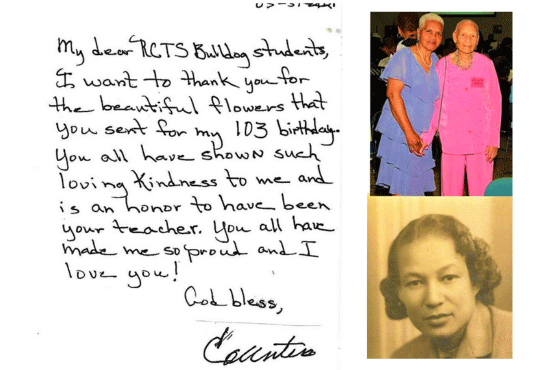 My dear RCTS Bulldog students,
I want to thank you for
the beautiful flowers that
you sent for my 103 birthday.
You all have shown such
loving Kindness to me and
is an honor to have been
your teacher. You all have
made me so proud and I
love you!
God bless,